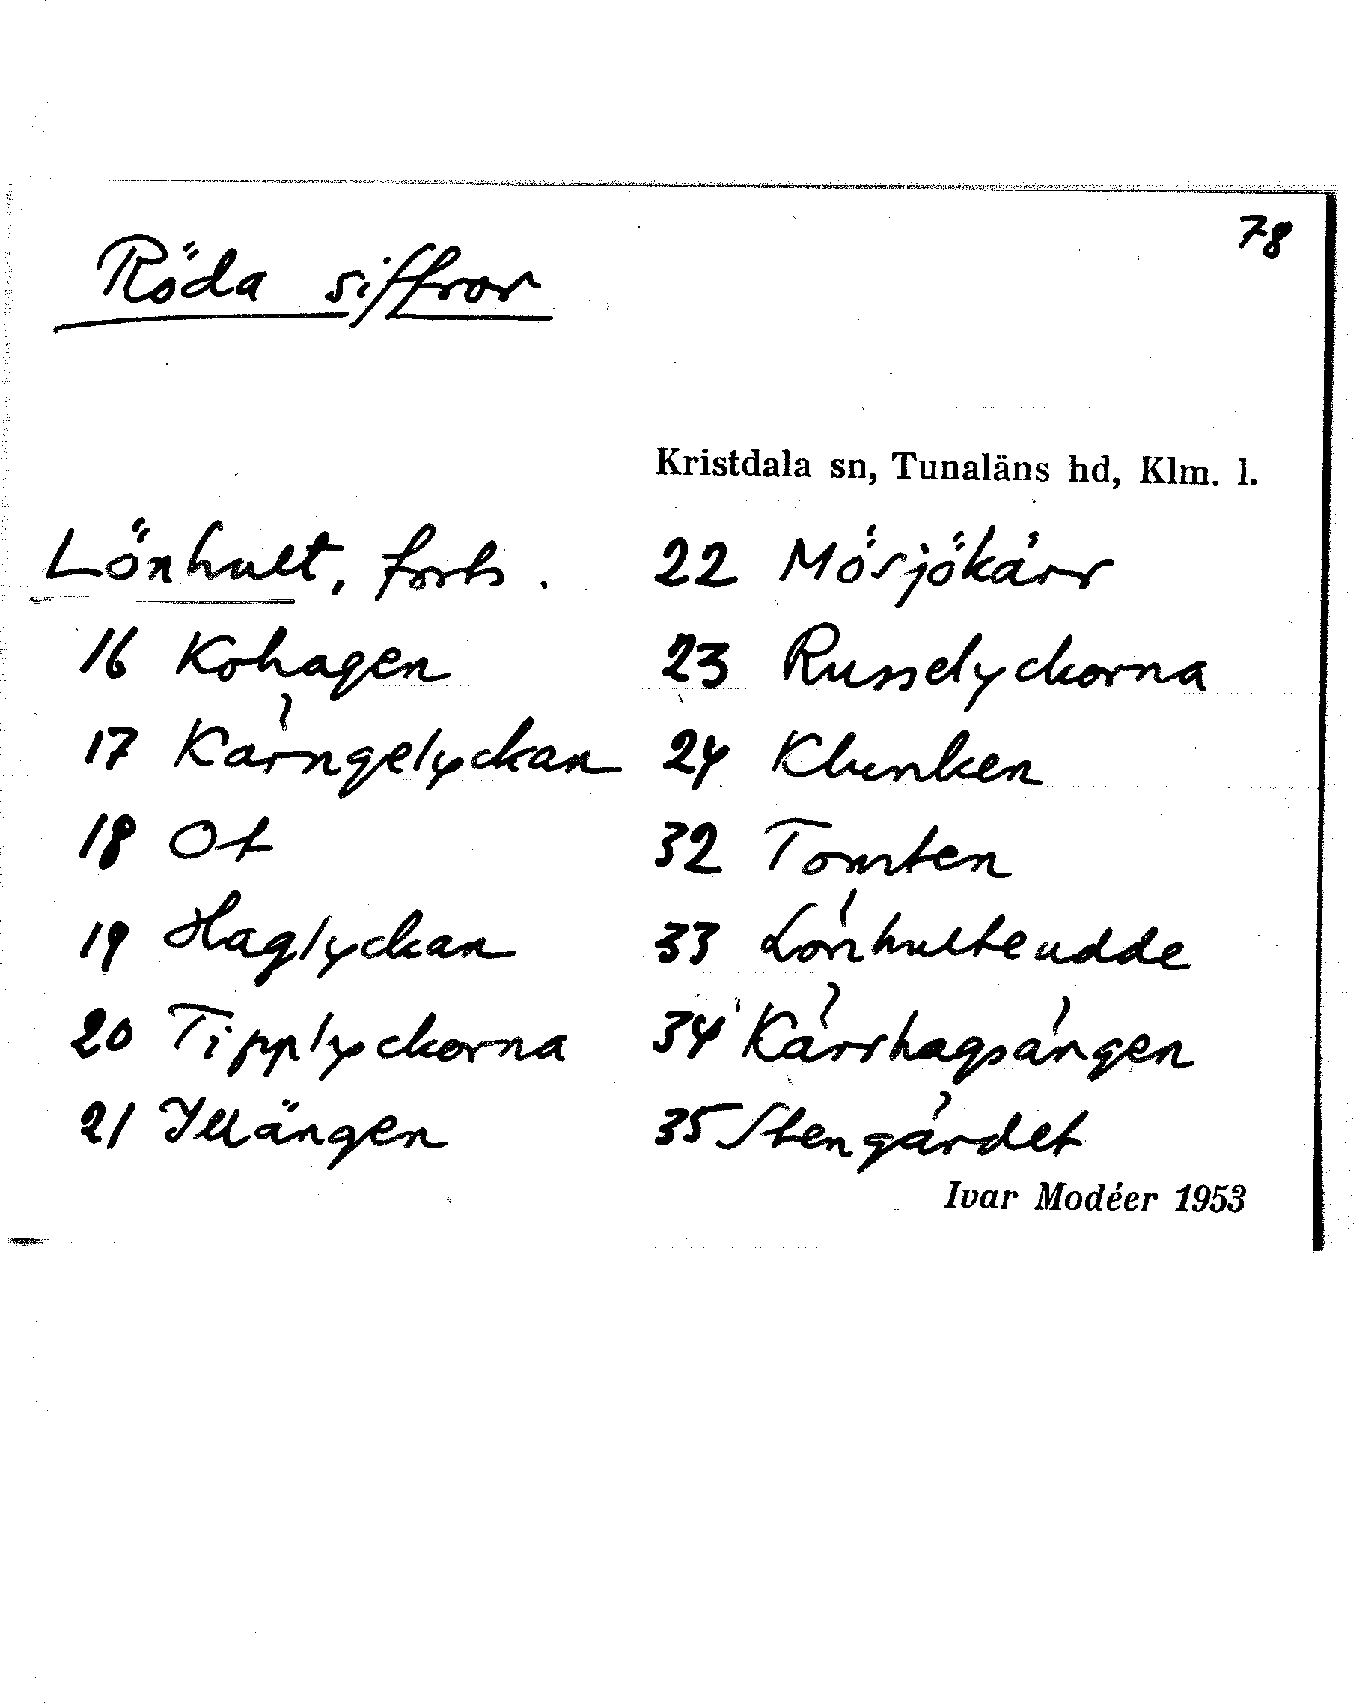 78
Röda siffror
Kristdala sn, Tunaläns hd, Klm. l.
Lönhult, forts.
16 Kohagen
17 Kärngelyckan
18 Ot
19 Haglyckan
20 Tipplyckorna
21 Illängen
22 Mösjökärr
23 Russelyckorna
24 Klunken
32 Tomten
33 Lönhulteudde
34 Kärrhagsängen
35 Stengärdet
Ivar Modéer 1953